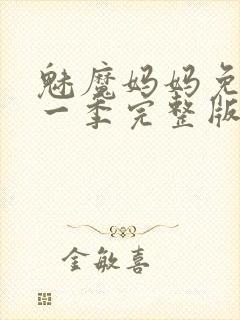 魅魔妈妈免
一季完整版
金敏喜